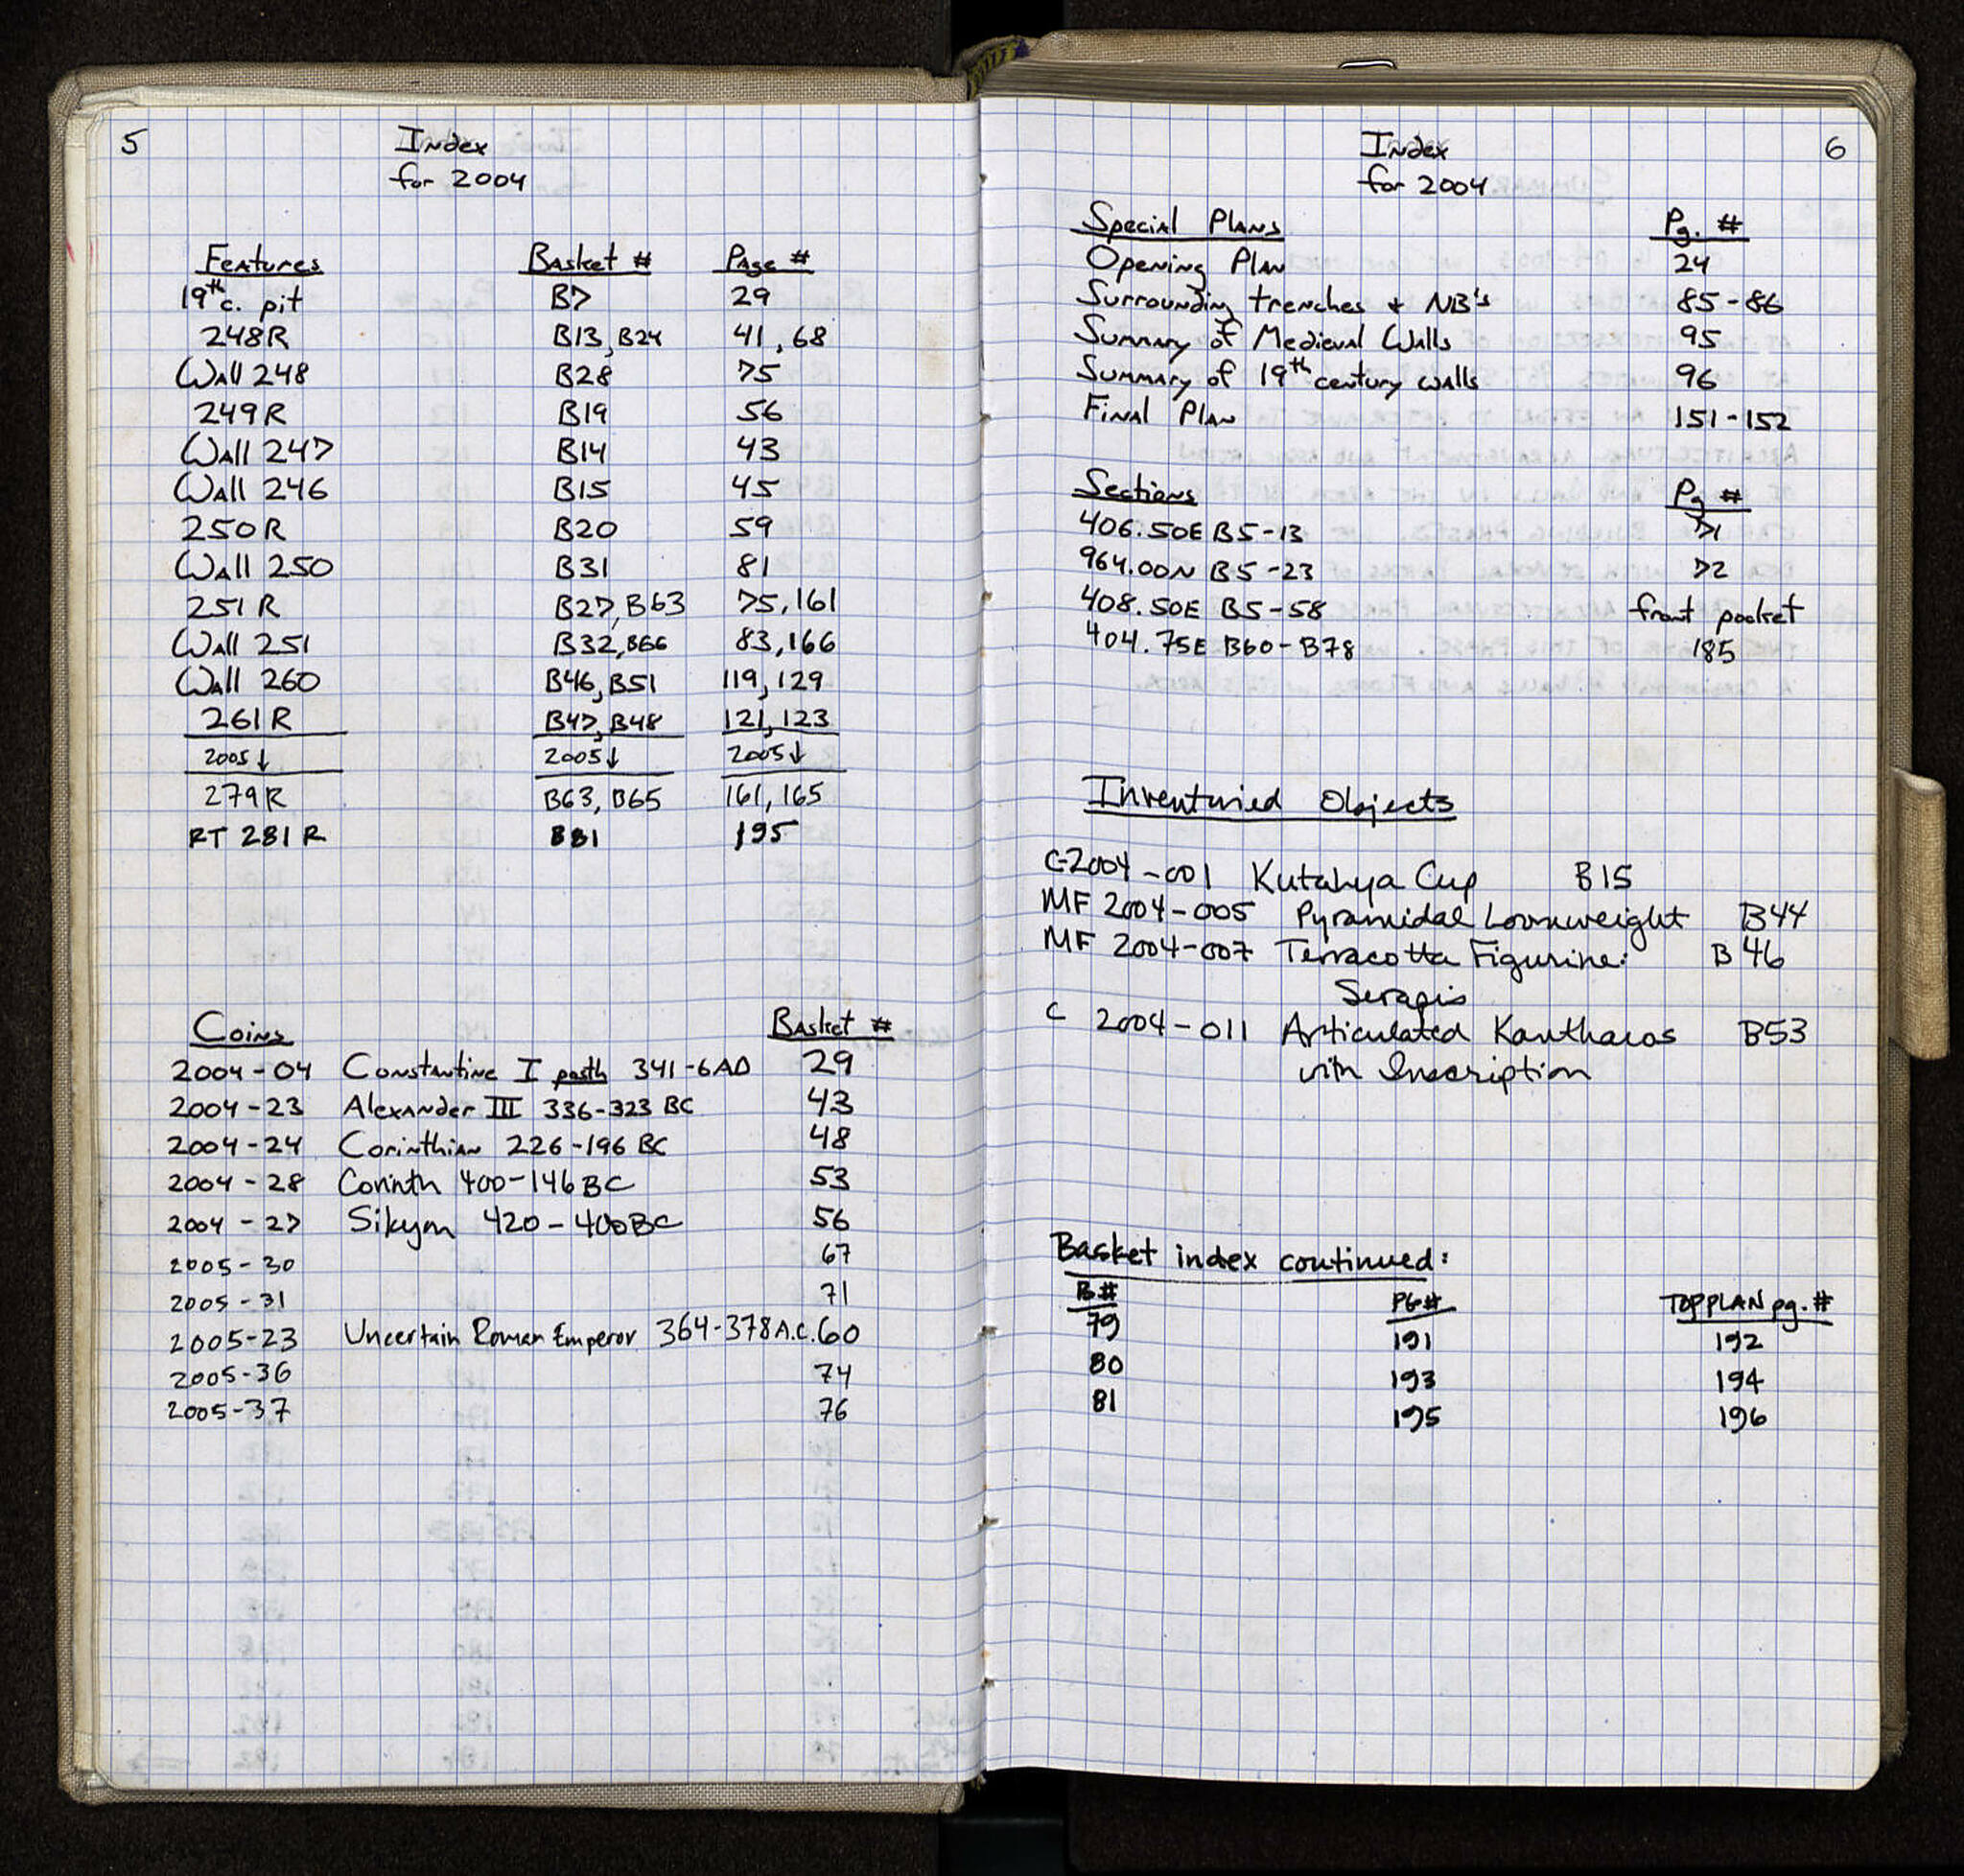 5
Index
for 2004
Features Basket # Page #
19th c. pit B7 29
248R B13, B24 41, 68
Wall 248 B28 75
249R B19 56
Wall 247 B14 43
Wall 246 B15 45
250R B20 59
Wall 250 B31 81
251R B27, B63 75, 161
Wall 251 B32, B66 83, 166
Wall 260 B46, B51 119, 129
261R B47, B48 121, 123
2005↓ 2005↓ 2005↓
279R B63, B65 161, 165
RT 281R B81 195
Coins Basket #
2004-04 Constantine I posth 341-6AD 29
2004-23 Alexander III 336-323 BC 43
2004-24 Corinthian 226-196 BC 48
2004-28 Corinth 400-146 BC 53
2004-27 Sikyon 420-400BC 56
2005-30 67
2005-31 71
2005-23 Uncertain Roman Emperor 364-378 A.C. 60
2005-36 74
2005-37 76
6
Index
for 2004
Special Plans Pg. #
Opening Plan 24
Surrounding trenches + NB's 85-86
Summary of Medieval Walls 95
Summary of 19th century walls 96
Final Plan 151-152
Sections Pg #
406.50E B5-13 71
964.00N B5-23 72
408.50E B5-58 front pocket
404.75E B60-B78 185
Inventoried Objects
C-2004-001 Kutahya Cup B15
MF 2004-005 Pyramidal Loomweight B44
MF 2004-007 Terracotta Figurine: B46
Serapis
C 2004-011 Articulated Kantharos B53
with Inscription
Basket index continued:
B# PG# TOP PLAN pg.#
79 191 192
80 193 194
81 195 196